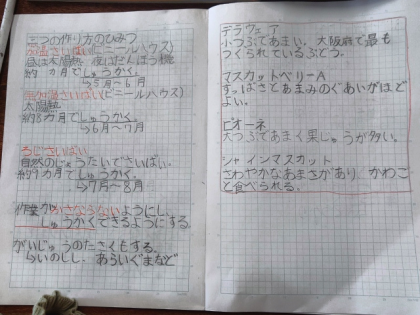 三つの作り方のひみつ
加温さいばい(ビニールハウス)
昼は太陽熱 夜はだんぼう機
約 カ月でしゅうかく。
→5月～6月
無加温さいばい(ビニールハウス)
太陽熱
約8カ月でしゅうかく。
→6月～7月
ろじさいばい
自然のじょうたいでさいばい。
約9カ月でしゅうかく。
→7月～8月
作業がかさならないようにし、
しゅうかくできるようにする。
がいじゅうのたさくもする。
→いのしし、あらいぐまなど
デラウェア
小つぶであまい。大阪府で最も
つくられているぶどう。
マスカットベリーA
すっぱさとあまみのぐあいがほど
よい。
ピオーネ
大つぶであまく果じゅうが多い。
シャインマスカット
さわやかなあまさがあり、かわご
と食べられる。